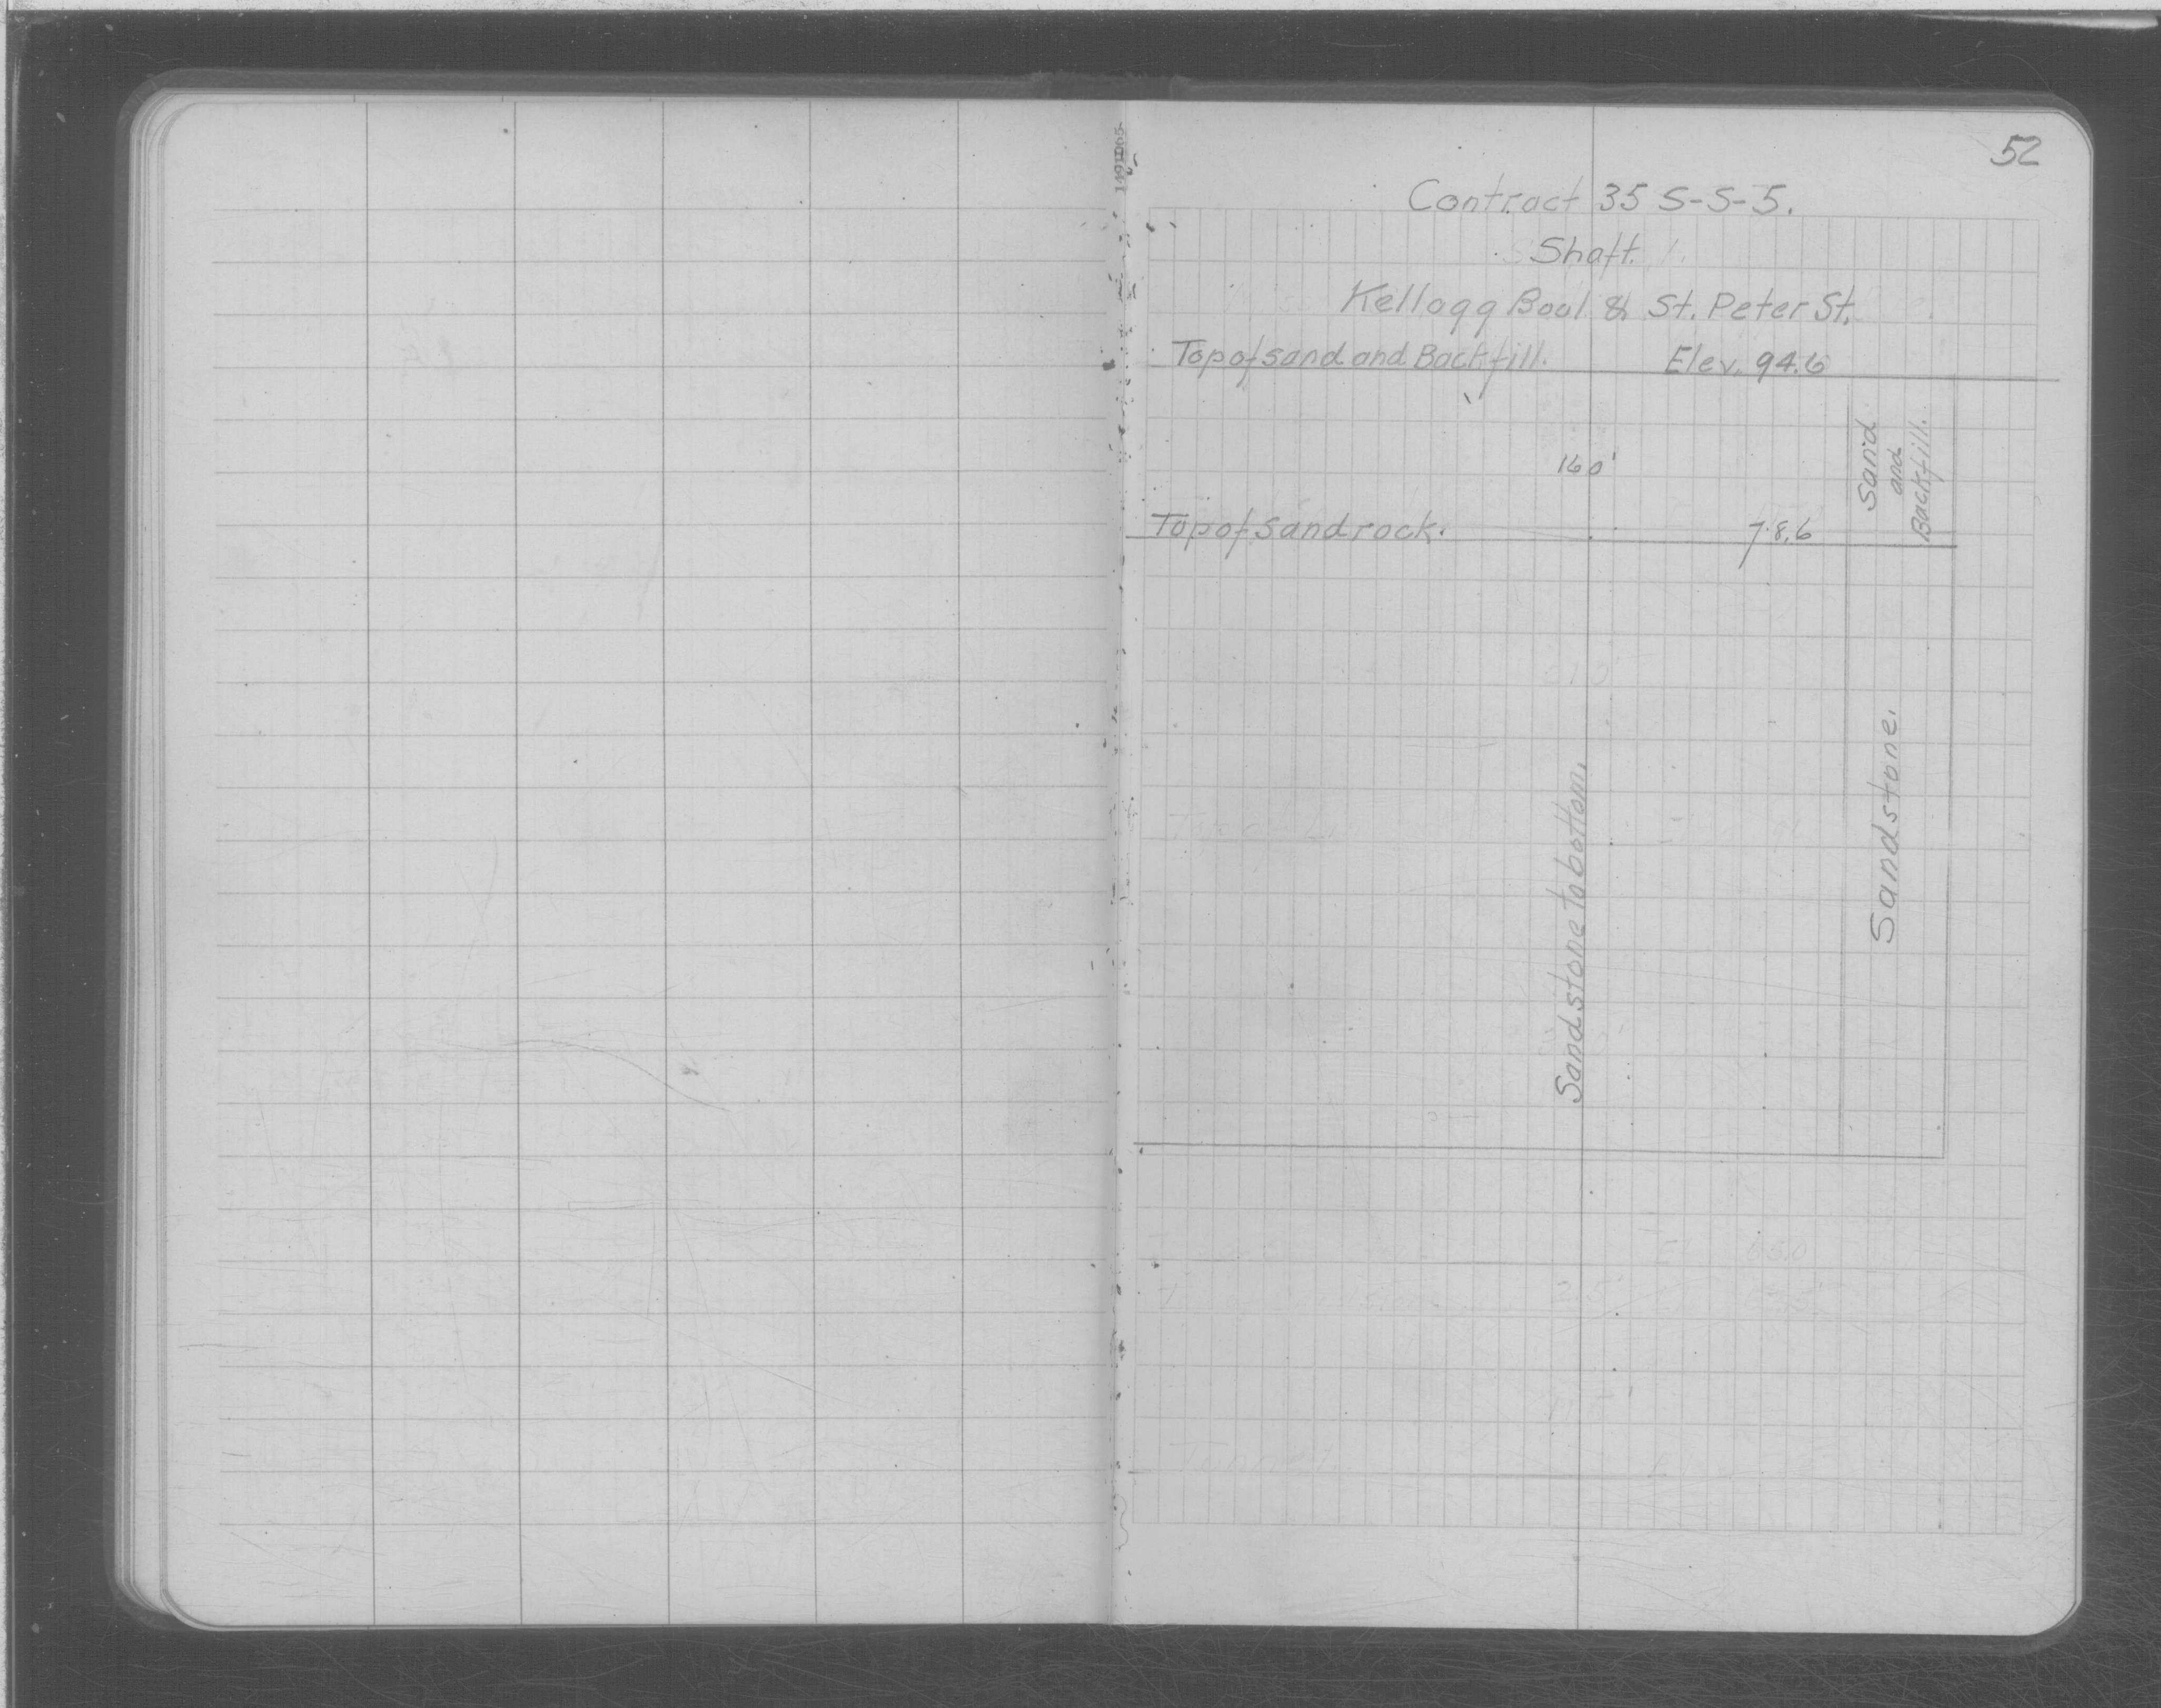 52
Contract 35 S-S-5.
Shaft.
Kellogg Boul & St. Peter St.
Top of sand and Backfill. Elev. 94.6
160'
Sand
and
Backfill.
Top of Sandrock. 78.6
Sandstone to bottom.
Sandstone.